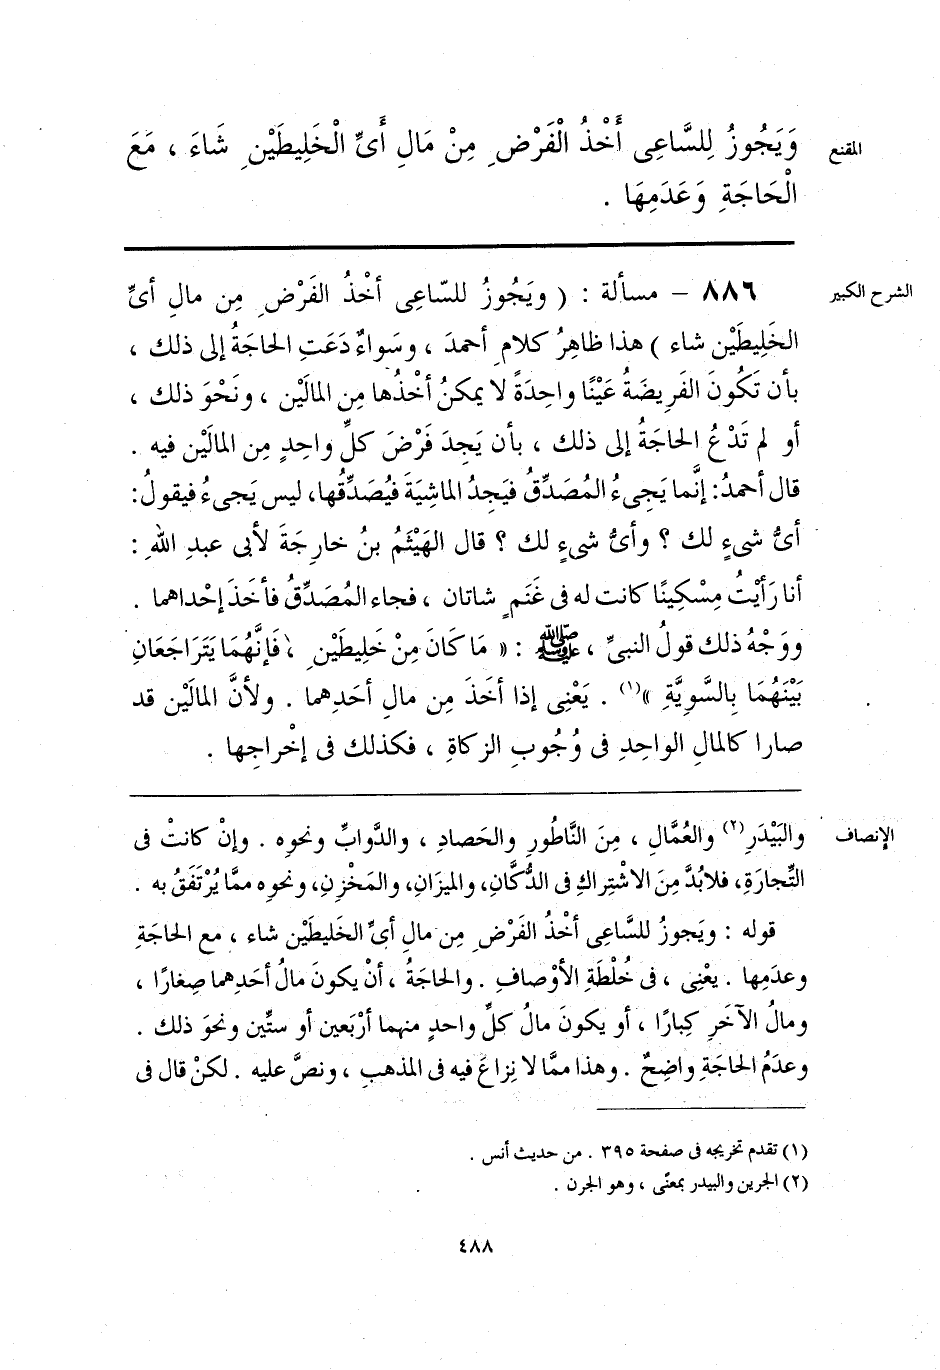 المقنع
وَيَجُوزُ لِلسَّاعِى أَخْذُ الْفَرْضِ مِنْ مَالِ أَىِّ الْخَلِيطَيْنِ شَاءَ ، مَعَ
الْحَاجَةِ وَعَدَمِهَا .
الشرح الكبير
٨٨٦ – مسألة : ( ويَجُوزُ للسّاعِى أخْذُ الفَرْضِ مِن مالِ أىِّ
الخَلِيطَيْن شاء ) هذا ظاهِرُ كلامِ أحمدَ ، وسَواءٌ دَعَتِ الحاجَةُ إلى ذلك ،
بأن تَكُونَ الفَرِيضَةُ عَيْنًا واحِدَةً لا يمكنُ أخْذُها مِن المالَيْن ، ونَحْوَ ذلك ،
أو لم تَدْعُ الحاجَةُ إلى ذلك ، بأن يَجِدَ فَرْضَ كلِّ واحِدٍ مِن المالَيْن فيه .
قال أحمدُ: إنَّما يَجِىءُ المُصَدِّقُ فيَجِدُ الماشِيَةَ فيُصَدِّقُها، ليس يَجِىءُ فيقولُ:
أىُّ شىءٍ لك ؟ وأىُّ شىءٍ لك ؟ قال الهَيْثَمُ بنُ خارِجَةَ لأبى عبدِ اللهِ :
أنا رَأيْتُ مِسْكِينًا كانت له فى غَنَمٍ شاتان ، فجاء المُصَدِّقُ فأخَذَ إحْداهما .
ووَجْهُ ذلك قولُ النبىِّ ، ﷺ : « مَا كَانَ مِنْ خَلِيطَيْنِ ، فَإنَّهُمَا يَتَرَاجَعَانِ
بَيْنَهُمَا بِالسَّوِيَّةِ »(١) . يَعْنِى إذا أخَذَ مِن مالِ أحَدِهما . ولأنَّ المالَيْن قد
صارا كالمالِ الواحِدِ فى وُجُوبِ الزكاةِ ، فكذلك فى إخْراجِها .
الإنصاف
والبَيْدَرِ(٢) والعُمَّالِ ، مِنَ النَّاطُورِ والحَصادِ ، والدَّوابِّ ونحوِه . وإنْ كانتْ فى
التِّجارَةِ، فلابُدَّ مِنَ الاشْتِراكِ فى الدُّكَّانِ، والميزَانِ، والمَخْزنِ، ونحوِه ممَّا يُرْتَفَقُ به .
قوله : ويَجوزُ للسَّاعِى أخْذُ الفَرْضِ مِن مالِ أىِّ الخَليطَيْن شاء ، مع الحاجَةِ
وعدَمِها . يعْنِى ، فى خُلْطَةِ الأوْصافِ . والحاجَةُ ، أنْ يكونَ مالُ أحَدِهما صِغارًا ،
ومالُ الآخَرِ كِبارًا ، أو يكونَ مالُ كلِّ واحدٍ منهما أرْبَعين أو ستِّين ونحوَ ذلك .
وعدَمُ الحاجَةِ واضِحٌ . وهذا ممَّا لا نِزاعَ فيه فى المذهبِ ، ونصَّ عليه . لكنْ قال فى
(١) تقدم تخريجه فى صفحة ٣٩٥ . من حديث أنس .
(٢) الجرين والبيدر بمعنًى ، وهو الجرن .
٤٨٨